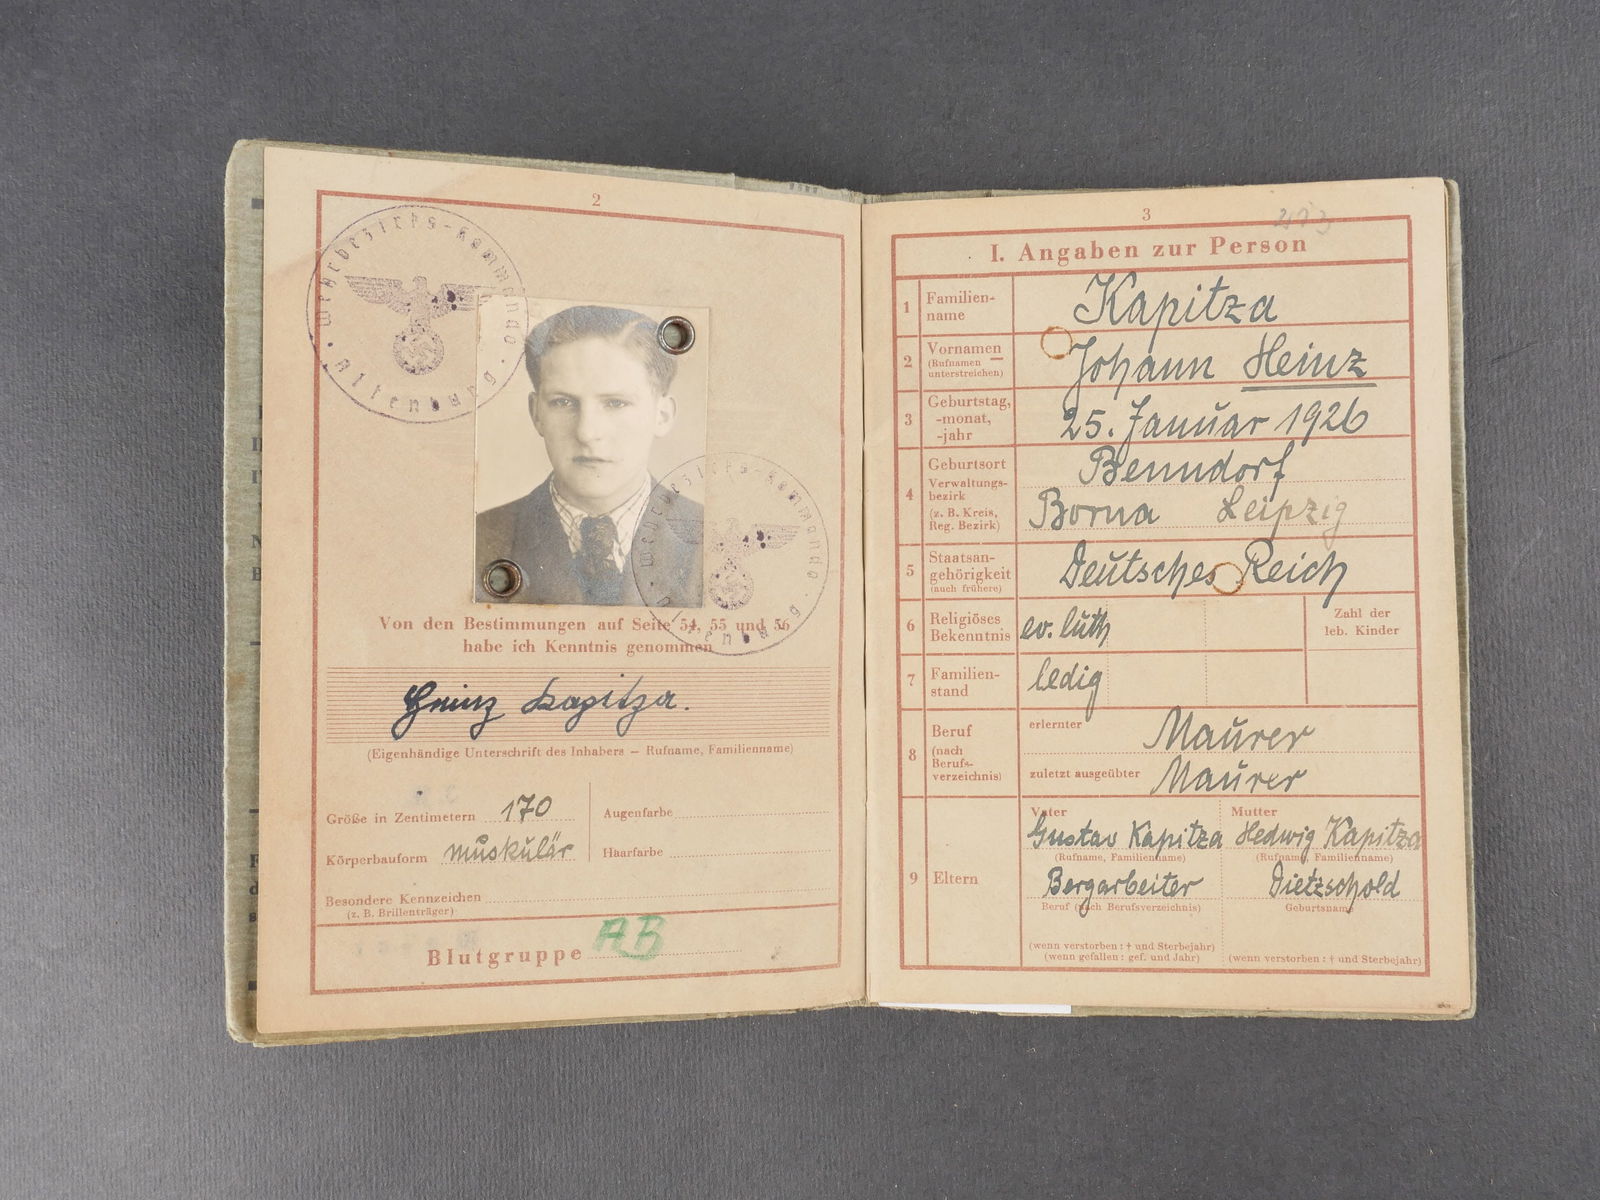 2
Wehrbezirks-Kommando
Altenburg
Wehrbezirks-Kommando
Von den Bestimmungen auf Seite 54, 55 und 56
habe ich Kenntnis genommen
Heinz Kapitza.
(Eigenhändige Unterschrift des Inhabers — Rufname, Familienname)
Größe in Zentimetern 170
Augenfarbe
Körperbauform muskulär
Haarfarbe
Besondere Kennzeichen
(z. B. Brillenträger)
Blutgruppe AB
3
I. Angaben zur Person
1 Familien-
name
Kapitza
2 Vornamen
(Rufnamen
unterstreichen)
Johann Heinz
3 Geburtstag,
-monat,
-jahr
25. Januar 1926
4 Geburtsort
Verwaltungs-
bezirk
(z. B. Kreis,
Reg. Bezirk)
Benndorf
Borna Leipzig
5 Staatsan-
gehörigkeit
(auch frühere)
Deutsches Reich
6 Religiöses
Bekenntnis
ev. luth
Zahl der
leb. Kinder
7 Familien-
stand
ledig
8 Beruf
(nach
Berufs-
verzeichnis)
erlernter Maurer
zuletzt ausgeübter Maurer
9 Eltern
Vater
Gustav Kapitza
(Rufname, Familienname)
Bergarbeiter
Beruf (nach Berufsverzeichnis)
(wenn verstorben: † und Sterbejahr)
(wenn gefallen: gef. und Jahr)
Mutter
Hedwig Kapitza
(Rufname, Familienname)
Dietzschold
Geburtsname
(wenn verstorben: † und Sterbejahr)